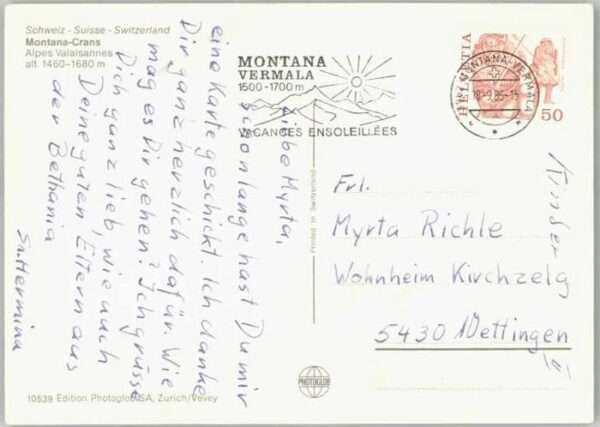 Schweiz - Suisse - Switzerland
Montana-Crans
Alpes Valaisannes
alt. 1460-1680 m
MONTANA
VERMALA
1500-1700 m
VACANCES ENSOLEILLÉES
MONTANA-VERMALA
HELVETIA
50
Liebe Myrta,
schon lange hast Du mir
eine Karte geschickt. Ich danke
Dir ganz herzlich dafür. Wie
mag es Dir gehen? Ich grüsse
Dich ganz lieb, wie auch
Deine guten Eltern aus
der Bethania
Sr. Hermina
Printed in Switzerland
Frl.
Myrta Richle
Wohnheim Kirchzelg
5430 Wettingen
Kinder
II
PHOTOGLOB
10539 Edition Photoglob SA, Zurich/Vevey